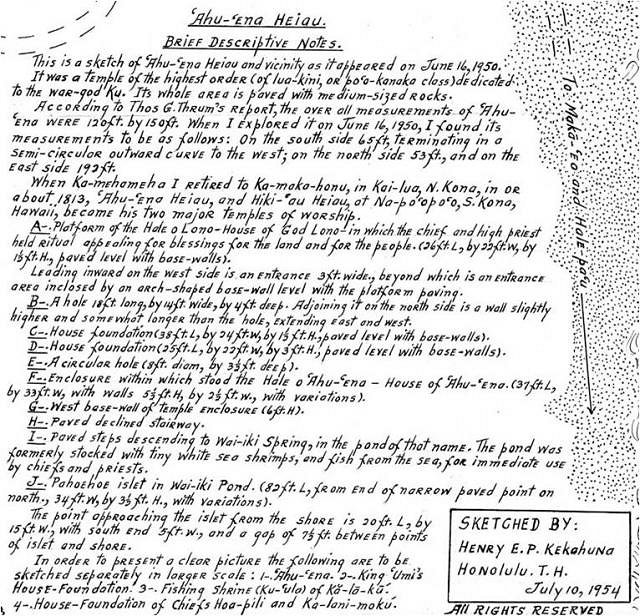 ʻAhu-ʻena Heiau.
Brief Descriptive Notes.
This is a sketch of ʻAhu-ʻena Heiau and vicinity as it appeared on June 16, 1950.
It was a temple of the highest order (of lua-kini, or poʻo-kanaka class) dedicated
to the war-god Ku. Its whole area is paved with medium-sized rocks.
According to Thos G. Thrum's report, the over all measurements of ʻAhu-
ʻena were 120ft. by 150ft. When I explored it on June 16, 1950, I found its
measurements to be as follows: On the south side 65ft, terminating in a
semi-circular outward curve to the west; on the north side 53ft., and on the
east side 192ft.
When Ka-mehameha I retired to Ka-maka-honu, in Kai-lua, N. Kona, in or
about, 1813, ʻAhu-ʻena Heiau, and Hiki-ʻau Heiau, at Na-poʻopoʻo, S. Kona,
Hawaii, became his two major temples of worship.
A-. Platform of the Hale o Lono-House of God Lono- in which the chief and high priest
held ritual appealing for blessings for the land and for the people. (26ft. L, by 22ft. W, by
1½ft. H., paved level with base-walls).
Leading inward on the west side is an entrance 3ft. wide., beyond which is an entrance
area inclosed by an arch-shaped base-wall level with the platform paving.
B-. A hole 18ft long, by 14ft. wide, by 4ft. deep. Adjoining it on the north side is a wall slightly
higher and somewhat longer than the hole, extending east and west.
C-. House foundation (38ft. L, by 24ft. W, by 1½ft. H., paved level with base-walls).
D-. House foundation (25ft. L, by 22ft. W, by 3ft. H., paved level with base-walls).
E-. A circular hole (8ft. diam, by 3½ft. deep).
F-. Enclosure within which stood the Hale o ʻAhu-ʻena - House of ʻAhu-ʻena. (37ft. L,
by 33ft. W, with walls 5½ft. H, by 2½ft. W., with variations).
G-. West base-wall of temple enclosure (6ft. H).
H-. Paved declined stairway.
I-. Paved steps descending to Wai-iki Spring, in the pond of that name. The pond was
formerly stocked with tiny white sea shrimps, and fish from the sea, for immediate use
by chiefs and priests.
J-. Pahoehoe islet in Wai-iki Pond. (82ft. L, from end of narrow paved point on
north., 34ft. W, by 3½ft. H., with variations).
The point approaching the islet from the shore is 20ft. L, by
15ft. W., with south end 5ft. W., and a gap of 7½ft. between points
of islet and shore.
In order to present a clear picture the following are to be
sketched separately in larger scale: 1-. ʻAhu-ʻena. 2-. King ʻUmi's
House-Foundation. 3-. Fishing Shrine (Ku-ʻula) of Kā-lā-kū.
4-. House-Foundation of Chiefs Hoa-pili and Ka-lani-moku.
To Makaʻeo and Hale paʻu
SKETCHED BY:
Henry E. P. Kekahuna
Honolulu. T. H.
July 10, 1954
All Rights Reserved